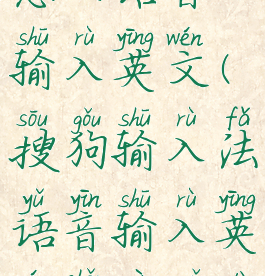 shū rù yīng wén
输入英文(
sōu gǒu shū rù fǎ
搜狗输入法
yǔ yīn shū rù yīng
语音输入英